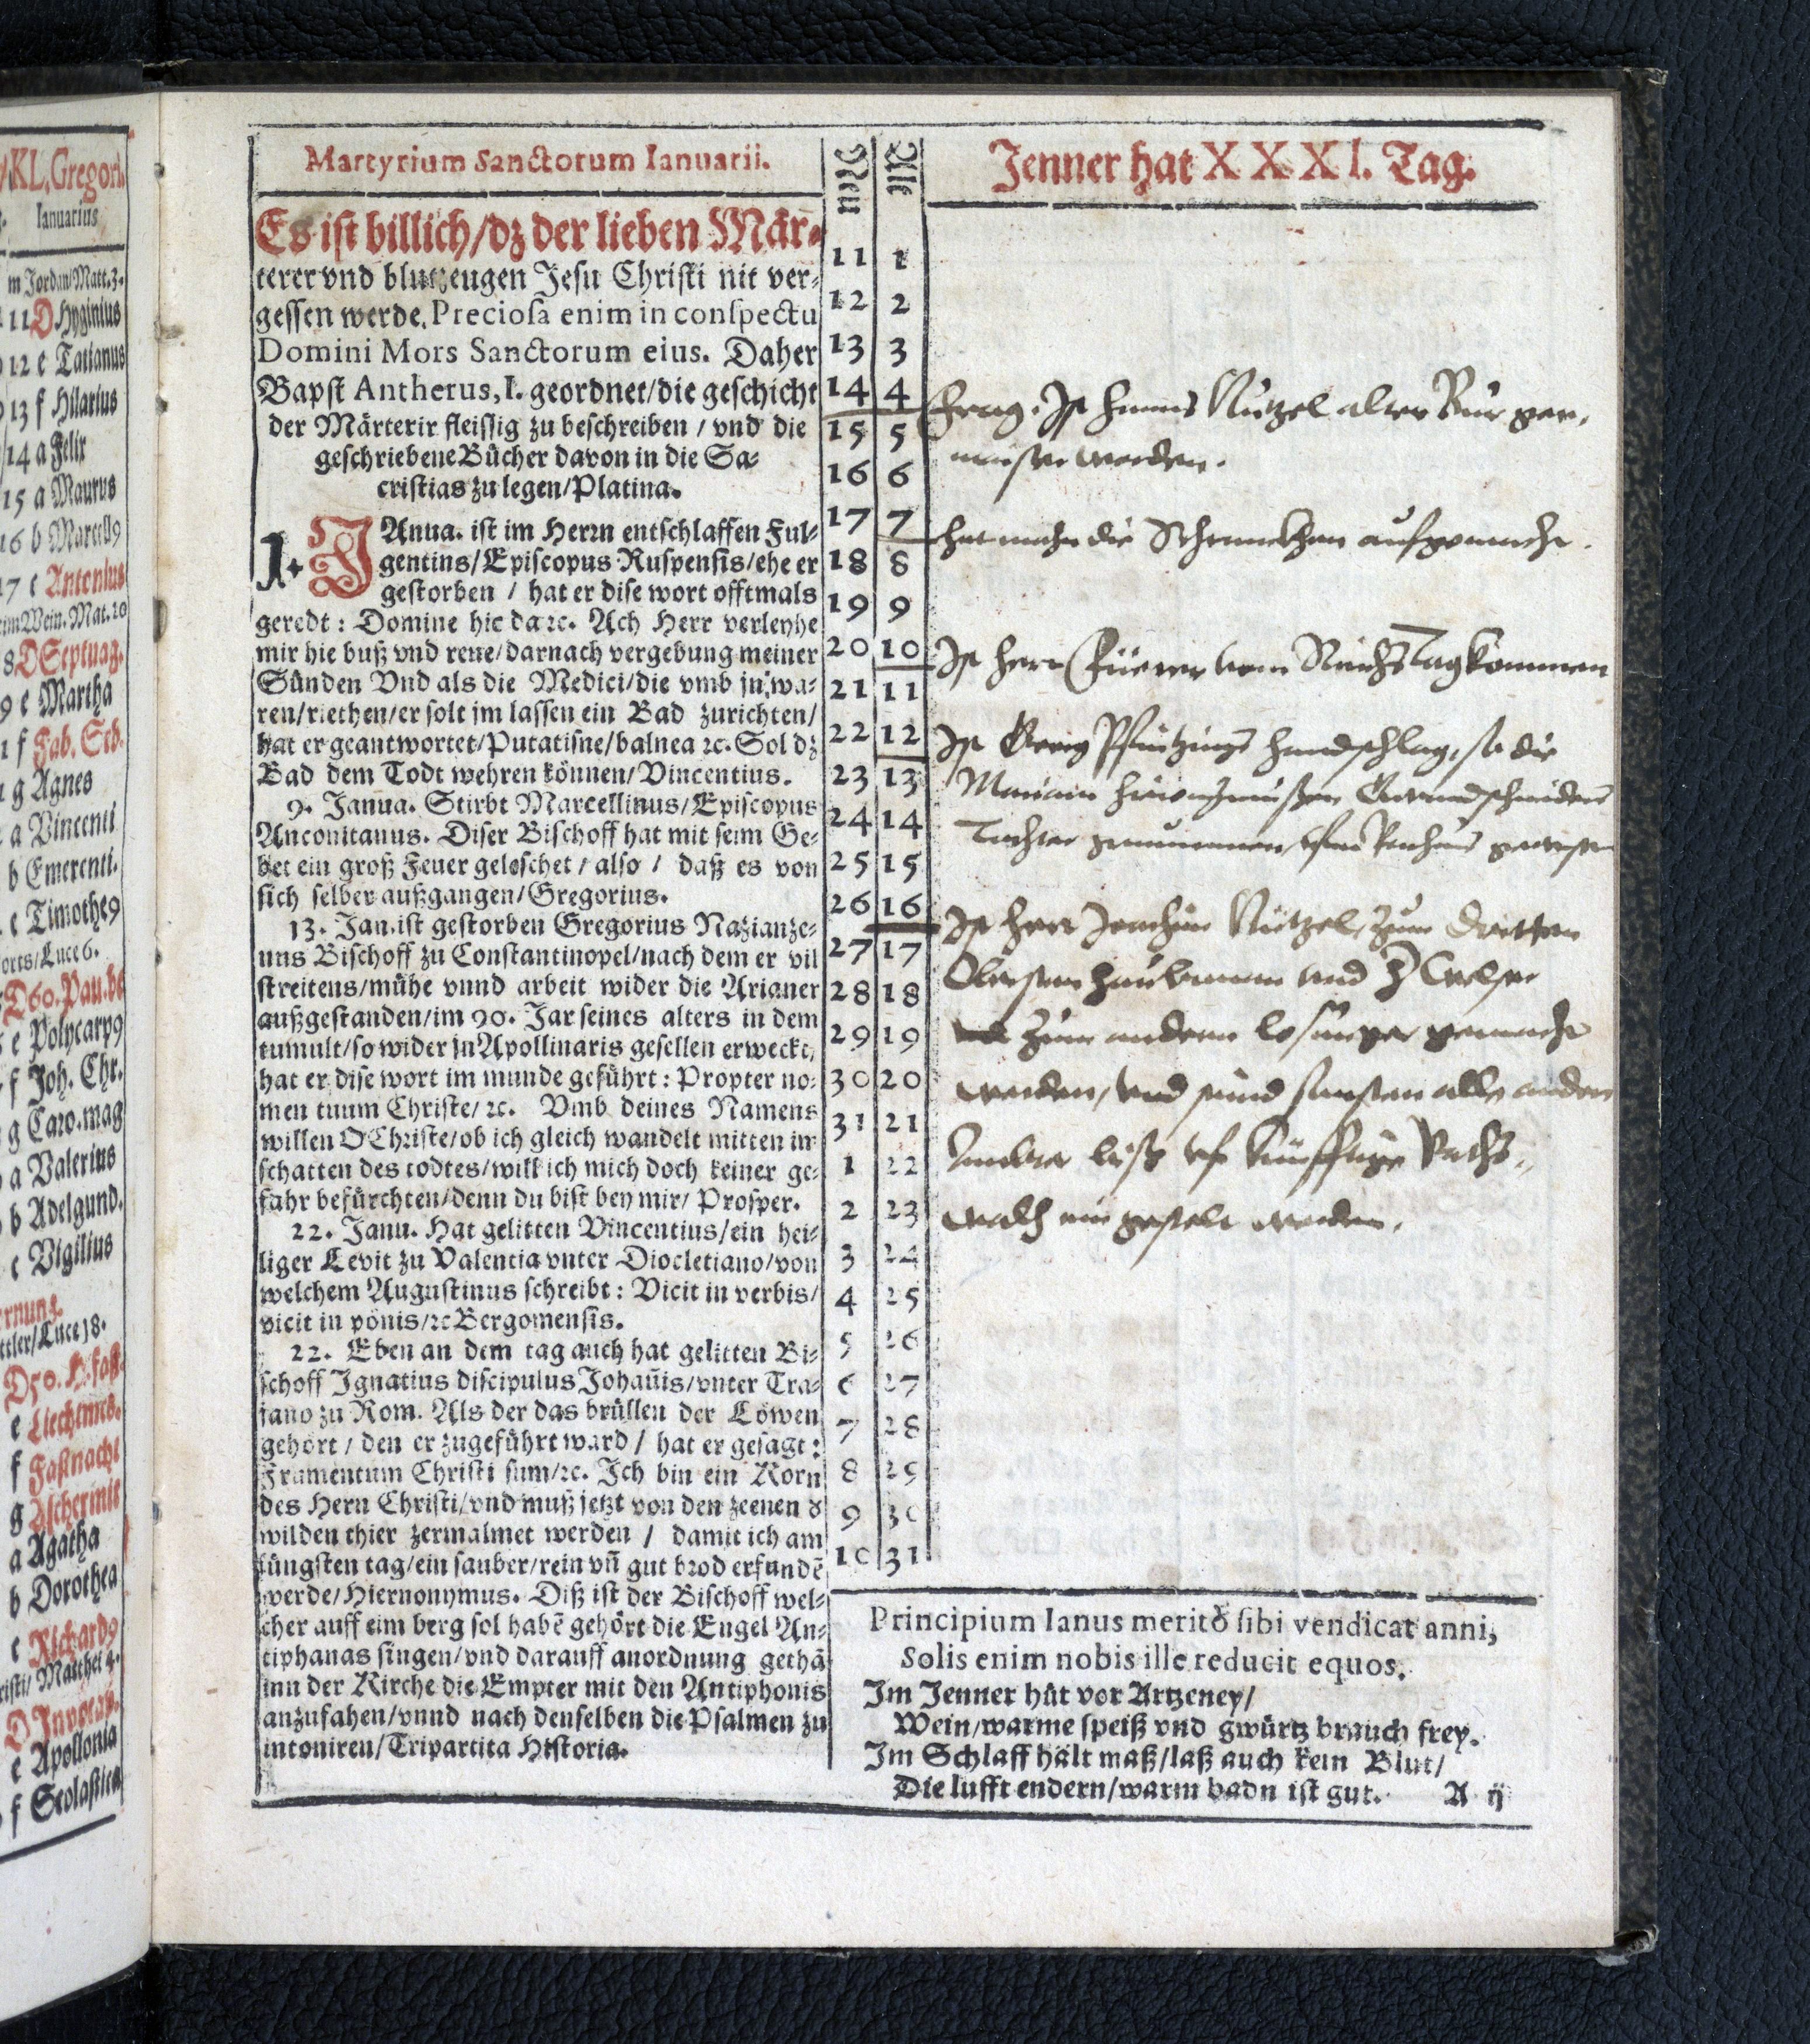 /KL. Gregori.
Ianuarius
m Jordan/Matt.3.
11 D Hyginius
12 e Tatianus
13 f Hilarius
14 a Felix
15 a Maurus
16 b Marcell9
17 c Antonius
im Wein. Mat. 20
8 D Septuag.
9 e Martha
1 f Fab. Seb.
1 g Agnes
a Vincenti
b Emerenti.
c Timothe9
orts/Luce 6.
D 60. Pau. be
e Polycarp9
f Joh. Chr.
g Caro. mag
a Valerius
b Adelgund.
c Vigilius
ttler/Luce 18.
D 50. H. fast.
e Liechtmes.
f Faßnacht
g Aschermit
a Agatha
b Dorothea
c Richard9
risti/ Matthei 4.
D Invocav.
e Apollonia
f Scolastica
Martyrium Sanctorum Ianuarii.
Es ist billich/dz der lieben Mär-
terer vnd blutzeugen Jesu Christi nit ver-
gessen werde. Preciosa enim in conspectu
Domini Mors Sanctorum eius. Daher
Bapst Antherus, I. geordnet/die geschicht
der Märterir fleissig zu beschreiben / vnd die
geschriebene Bücher davon in die Sa-
cristias zu legen/Platina.
1. JAnua. ist im Herrn entschlaffen Ful-
gentins/Episcopus Ruspensis/ehe er
gestorben / hat er dise wort offtmals
geredt: Domine hic da ꝛc. Ach Herr verleyhe
mir hie buß vnd rene/darnach vergebung meiner
Sünden Vnd als die Medici/die vmb jn wa-
ren/riethen/er solt jm lassen ein Bad zurichten/
hat er geantwortet/Putatisne/balnea ꝛc. Sol dz
Bad dem Todt wehren können/Vincentius.
9. Janua. Stirbt Marcellinus/Episcopus
Anconitanus. Diser Bischoff hat mit seim Ge-
bet ein groß Feuer geleschet / also / daß es von
sich selber außgangen/Gregorius.
13. Jan. ist gestorben Gregorius Nazianze-
nus Bischoff zu Constantinopel/nach dem er vil
streitens/mühe vnnd arbeit wider die Arianer
außgestanden/im 90. Jar seines alters in dem
tumult/so wider jn Apollinaris gesellen erweckt,
hat er dise wort im munde geführt: Propter no-
men tuum Christe/ ꝛc. Vmb deines Namens
willen O Christe/ob ich gleich wandelt mitten im
schatten des todtes/will ich mich doch keiner ge-
fahr befürchten/denn du bist bey mir/ Prosper.
22. Janu. Hat gelitten Vincentius/ein hei-
liger Levit zu Valentia vnter Diocletiano/von
welchem Augustinus schreibt: Vicit in verbis/
vicit in pönis/ꝛc Bergomensis.
22. Eben an dem tag auch hat gelitten Bi-
schoff Ignatius discipulus Johañis/vnter Tra-
jano zu Rom. Als der das brüllen der Löwen
gehört / den er zugeführt ward / hat er gesagt:
Frumentum Christi sum/ꝛc. Ich bin ein Korn
des Hern Christi/vnd muß jetzt von den zeenen d
wilden thier zermalmet werden / damit ich am
jüngsten tag/ein sauber/rein vñ gut brod erfundē
werde/Hiernonymus. Diß ist der Bischoff wel-
cher auff eim berg sol habē gehört die Engel An-
tiphanas singen/vnd darauff anordnung gethā
inn der Kirche die Empter mit den Antiphonis
anzufahen/vnnd nach denselben die Psalmen zu
intoniren/Tripartita Historia.
Neu Alte
11 1
12 2
13 3
14 4
15 5
16 6
17 7
18 8
19 9
20 10
21 11
22 12
23 13
24 14
25 15
26 16
27 17
28 18
29 19
30 20
31 21
1 22
2 23
3 24
4 25
5 26
6 27
7 28
8 29
9 30
10 31
Jenner hat XXXI. Tag.
frag. Ist Hanns Nützel alter Burger,
maister worden.
hat mahn die Schranckhen aufgemacht.
Ist Herr Füerer vom Reichstag kommen
Ist Georg Pfintzings handschlag, so die
Mariam
Tochter genummen, ufm Rathaus gewesen
Ist Herr Joachim Nützel, zum dritten
Obersten haubtman vnd H Welser
zum andern losunger gemacht
worden, vnd seind sunsten alle andere
Ämbter biß vf künfftige Raths-
wahl ein gestelt worden.
Principium Ianus meritò sibi vendicat anni,
Solis enim nobis ille reducit equos.
Im Jenner hüt vor Artzeney/
Wein/warme speiß vnd gwürtz brauch frey.
Im Schlaff hält maß/laß auch kein Blut/
Die lufft endern/warm badn ist gut. A ij